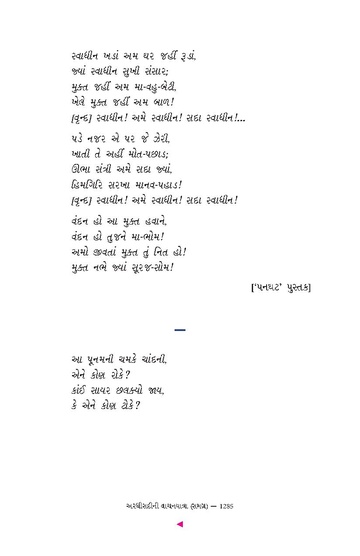 સ્વાધીન ખડાં અમ ઘર જહીં રૂડાં,
જ્યાં સ્વાધીન સુખી સંસાર;
મુક્ત જહીં અમ મા-વહુ-બેટી,
ખેલે મુક્ત જહીં અમ બાળ!
[વૃન્દ] સ્વાધીન! અમે સ્વાધીન! સદા સ્વાધીન!...
પડે નજર એ પર જે ઝેરી,
ખાતી તે અહીં મોત-પછાડ;
ઊભા સંત્રી અમે સદા જ્યાં,
હિમગિરિ સરખા માનવ-પહાડ!
[વૃન્દ] સ્વાધીન! અમે સ્વાધીન! સદા સ્વાધીન!
વંદન હો આ મુક્ત હવાને,
વંદન હો તુજને મા-ભોમ!
અમો જીવતાં મુક્ત તું નિત હો!
મુક્ત નભે જ્યાં સૂરજ-સોમ!
['પનઘટ' પુસ્તક]
આ પૂનમની ચમકે ચાંદની,
એને કોણ રોકે?
કાંઈ સાયર છલક્યો જાય,
કે એને કોણ ટોકે?
અરધીસદીની વાચનયાત્રા (સમગ્ર) — 1285